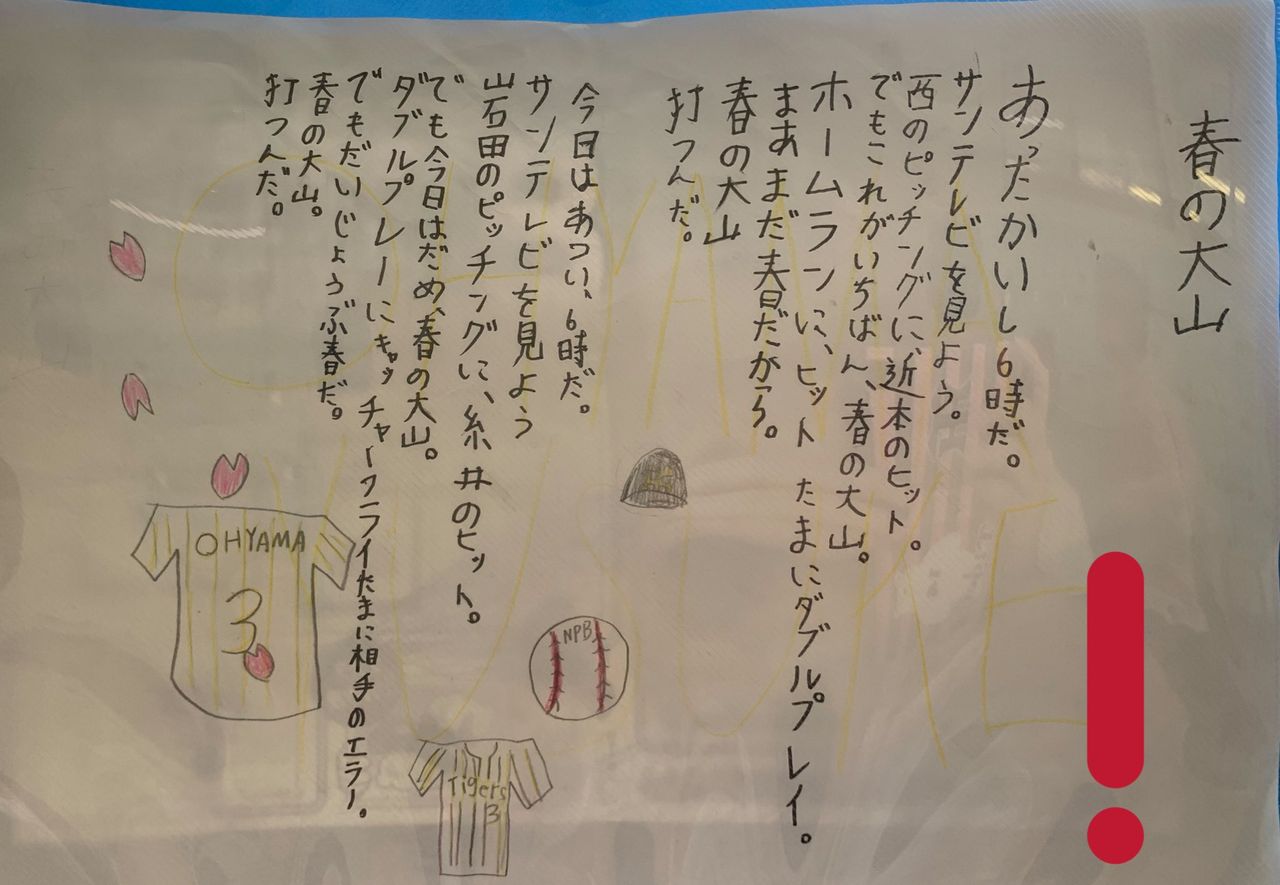 春の大山
あったかいし6時だ。
サンテレビを見よう。
西のピッチングに、近本のヒット。
でもこれがいちばん、春の大山。
ホームランに、ヒット たまにダブルプレイ。
まあまだ春だがら。
春の大山
打つんだ。
今日はあつい、6時だ。
サンテレビを見よう
岩田のピッチングに、糸井のヒット。
でも今日はだめ、春の大山。
ダブルプレーにキャッチャーフライたまに相手のエラー。
でもだいじょうぶ春だ。
春の大山。
打つんだ。
OHYAMA
3
NPB
Tigers
3